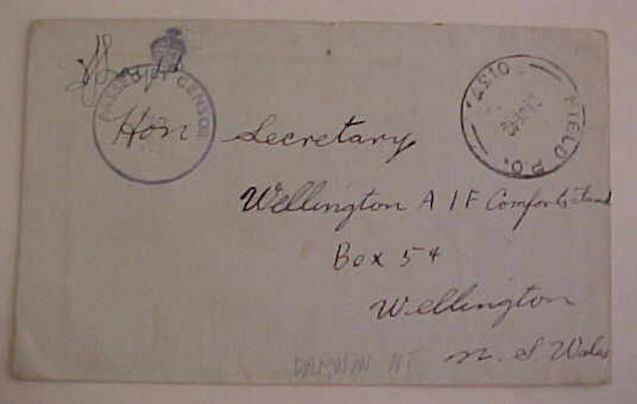 PASSED BY CENSOR
FIELD P.O. 0137
Hon Secretary
Wellington A I F Comforts Fund
Box 54
Wellington
N. S Wales
DARWIN NT